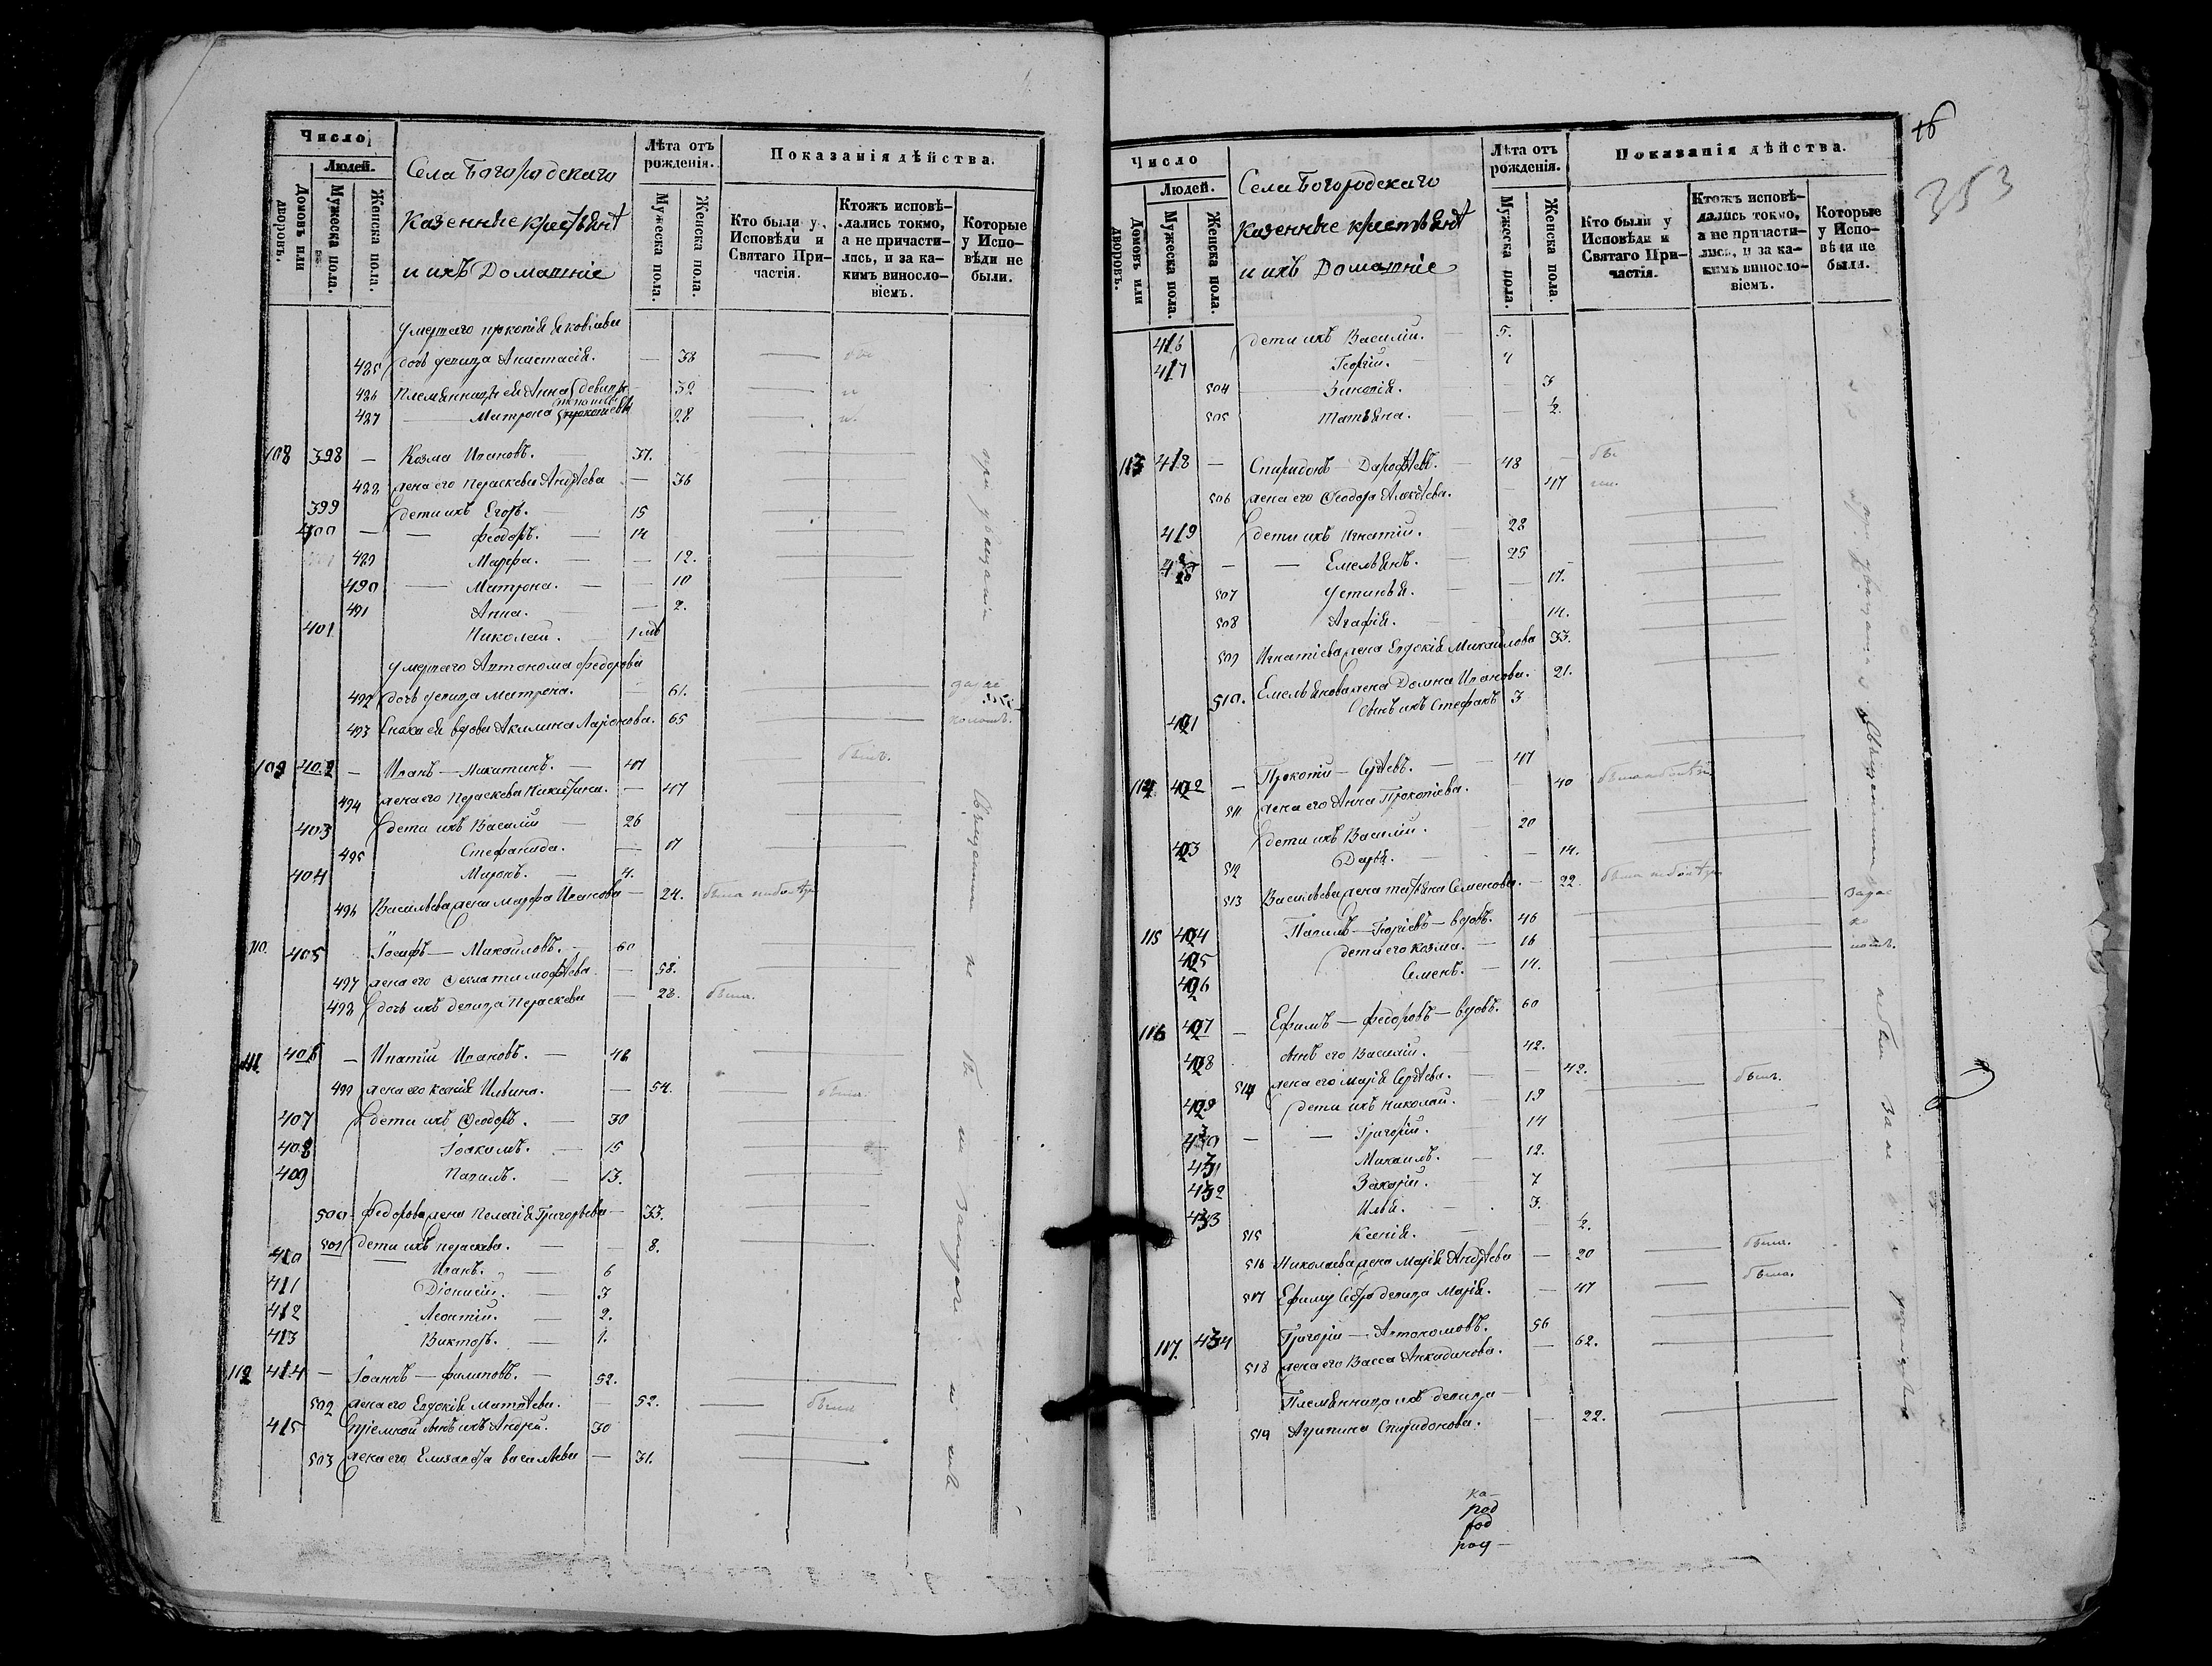 Число
Людей.
Домовъ или дворовъ.
Мужеска пола.
Женска пола.
Села Богородскаго
казенные крестьянѣ
и ихъ Домашніе
Лѣта отъ рожденія.
Мужеска пола.
Женска пола.
Показанія дѣйства.
Кто были у Исповѣди и Святаго Причастія.
Ктожъ исповѣдались токмо, а не причастились, и за какимъ винословіемъ.
Которые у Исповѣди не были.
умершаго прокопія Яковлева
425 дочь девица Анастасія. — 36
426 Племянницы ея Анна девицы 32
427 — Матрона 28
108 398 — Козма Ивановъ. 37.
жена его Параскева Андрѣева — 36
399 дети ихъ Егоръ. 15
400 — — феодоръ. — 14
Марфа. — — 12.
490 — Матрона. — — 10
491 Анна. — 2.
401 Николай. 1
умершаго Автонома федорова
492 дочь девица матрона. 61.
493 Сноха ея вдова Акилина Ларіонова. 65
109 402 — Иванъ — Никитинъ. — 47
494 жена его Параскева Никитина. — 47
403 дети ихъ Василій — 26
495 Стефанида. — 17
404 Миронъ. — 4.
496 Васильева жена Марфа Иванова — 24. была
110. 405 Іосифъ — Михайловъ. — 60
497 жена его Фекла тимофѣева — 58.
498 дочь ихъ девица Параскева — 28. была.
111. 406 — Ипатій Ивановъ. — 48
499 жена его Ксенія Ильина. — 54. была.
407 дети ихъ Феодоръ. — 30
408 Іоакимъ. — 15
409 Павелъ. — 13.
500 федорова жена Пелагія Григорьева — 33.
501 дети ихъ параскева. — — 8.
410 — Иванъ. — 6
411 Діонисій. — 3
412 Леонтій. — 2.
413 Викторъ. — 1.
112 414 — Іоаннъ — филиповъ. — 52.
502 жена его Евдокія Матвѣева. — 52. была
415 Пріемной сынъ ихъ Андрей. 30
503 жена его Елизавета васильева — 31.
16
353
Число
Людей.
Домовъ или дворовъ.
Мужеска пола.
Женска пола.
Села Богородскаго
казенные крестьянѣ
и ихъ Домашніе
Лѣта отъ рожденія.
Мужеска пола.
Женска пола.
Показанія дѣйства.
Кто были у Исповѣди и Святаго Причастія.
Ктожъ исповѣдались токмо, а не причастились, и за какимъ винословіемъ.
Которые у Исповѣди не были.
416 дети ихъ Василій. — 5.
417 Георгій. 4
504 Зиновія. — — 3
505 Татьяна. — — ½.
113 418 — Спиридонъ — Дорофѣевъ. — 48
506 жена его Феодора Алексѣева. — 47
419 дети ихъ Игнатій. — 28
420 — — Емельянъ. — 25
507 Устинья. — — 17.
508 Агафія. — — 14.
509 Игнатіева жена Евдокія Михайлова 33.
510. Емельянова жена Домна Иванова. 21.
421 Сынъ ихъ Стефанъ 3
114 422 — Прокопій — Сергѣевъ. — — 47
511 жена его Анна Прокопіева. — 40
423 дети ихъ Василій. — 20
512 Дарья. — — 14.
513 Васильева жена татьяна Семенова. — 22.
115 424 Павелъ — Георгіевъ — вдовъ. 46
425 дети его козма. — 16
426 Семенъ. — 14.
116 427 — Ефимъ — федоровъ — вдовъ. 60
428 сынъ его Василій. — 42.
514 жена его марія Сергѣева. — — 42.
429 дети ихъ Николай. — 19
430 — — Григорій. — 14
431 Михаилъ. — 12.
432 Захарій. — 7
433 Илья. — 3.
515 Ксенія. — ½.
516 Николаева жена Марія Андрѣева — 20 была.
517 Ефиму Сестра девица Марія. — 47 была.
117. 434 Григорій — Автономовъ. 56
518 жена его Васса Анкидинова. — 62.
Племянница ихъ девица —
519 Агрипина Спиридонова. — 22.
ка—
род
бод
рац—